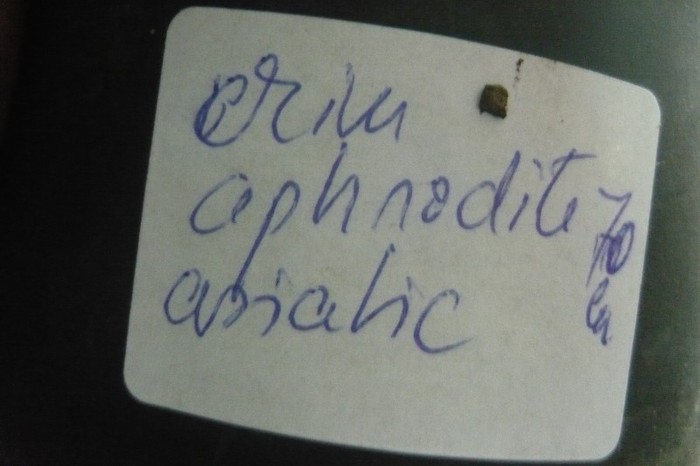 crin
aphrodite
asiatic